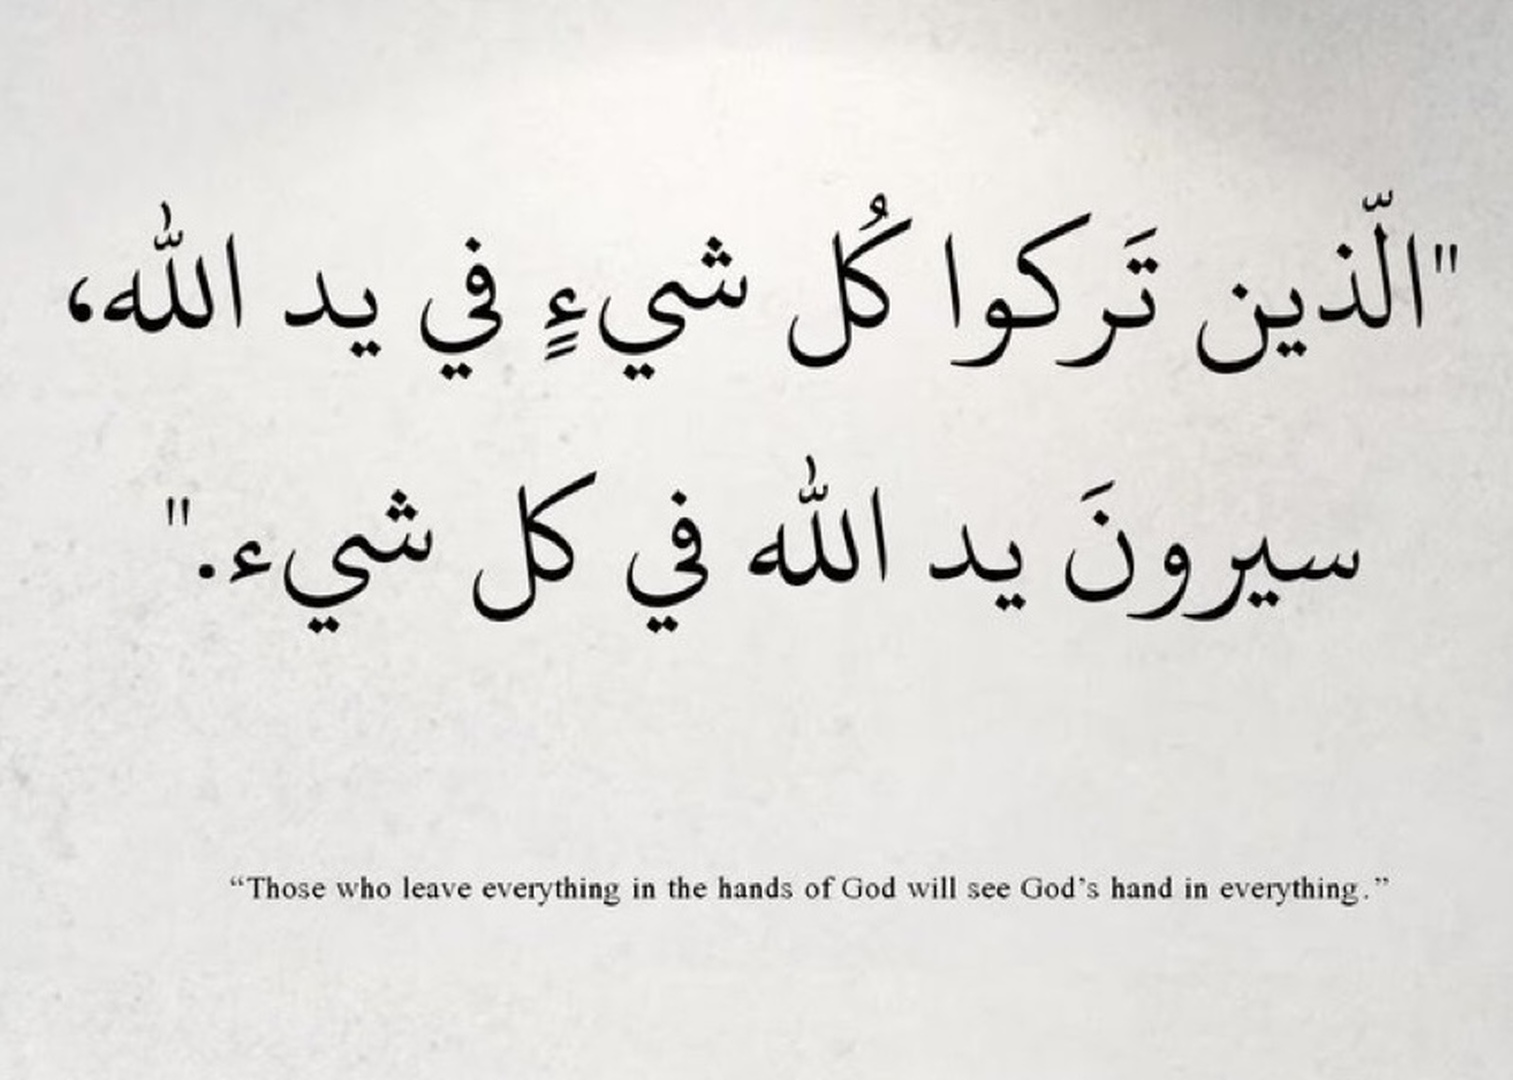 "الّذين تَركوا كُل شيءٍ في يد الله،
سيرونَ يد الله في كل شيء."
“Those who leave everything in the hands of God will see God’s hand in everything.”